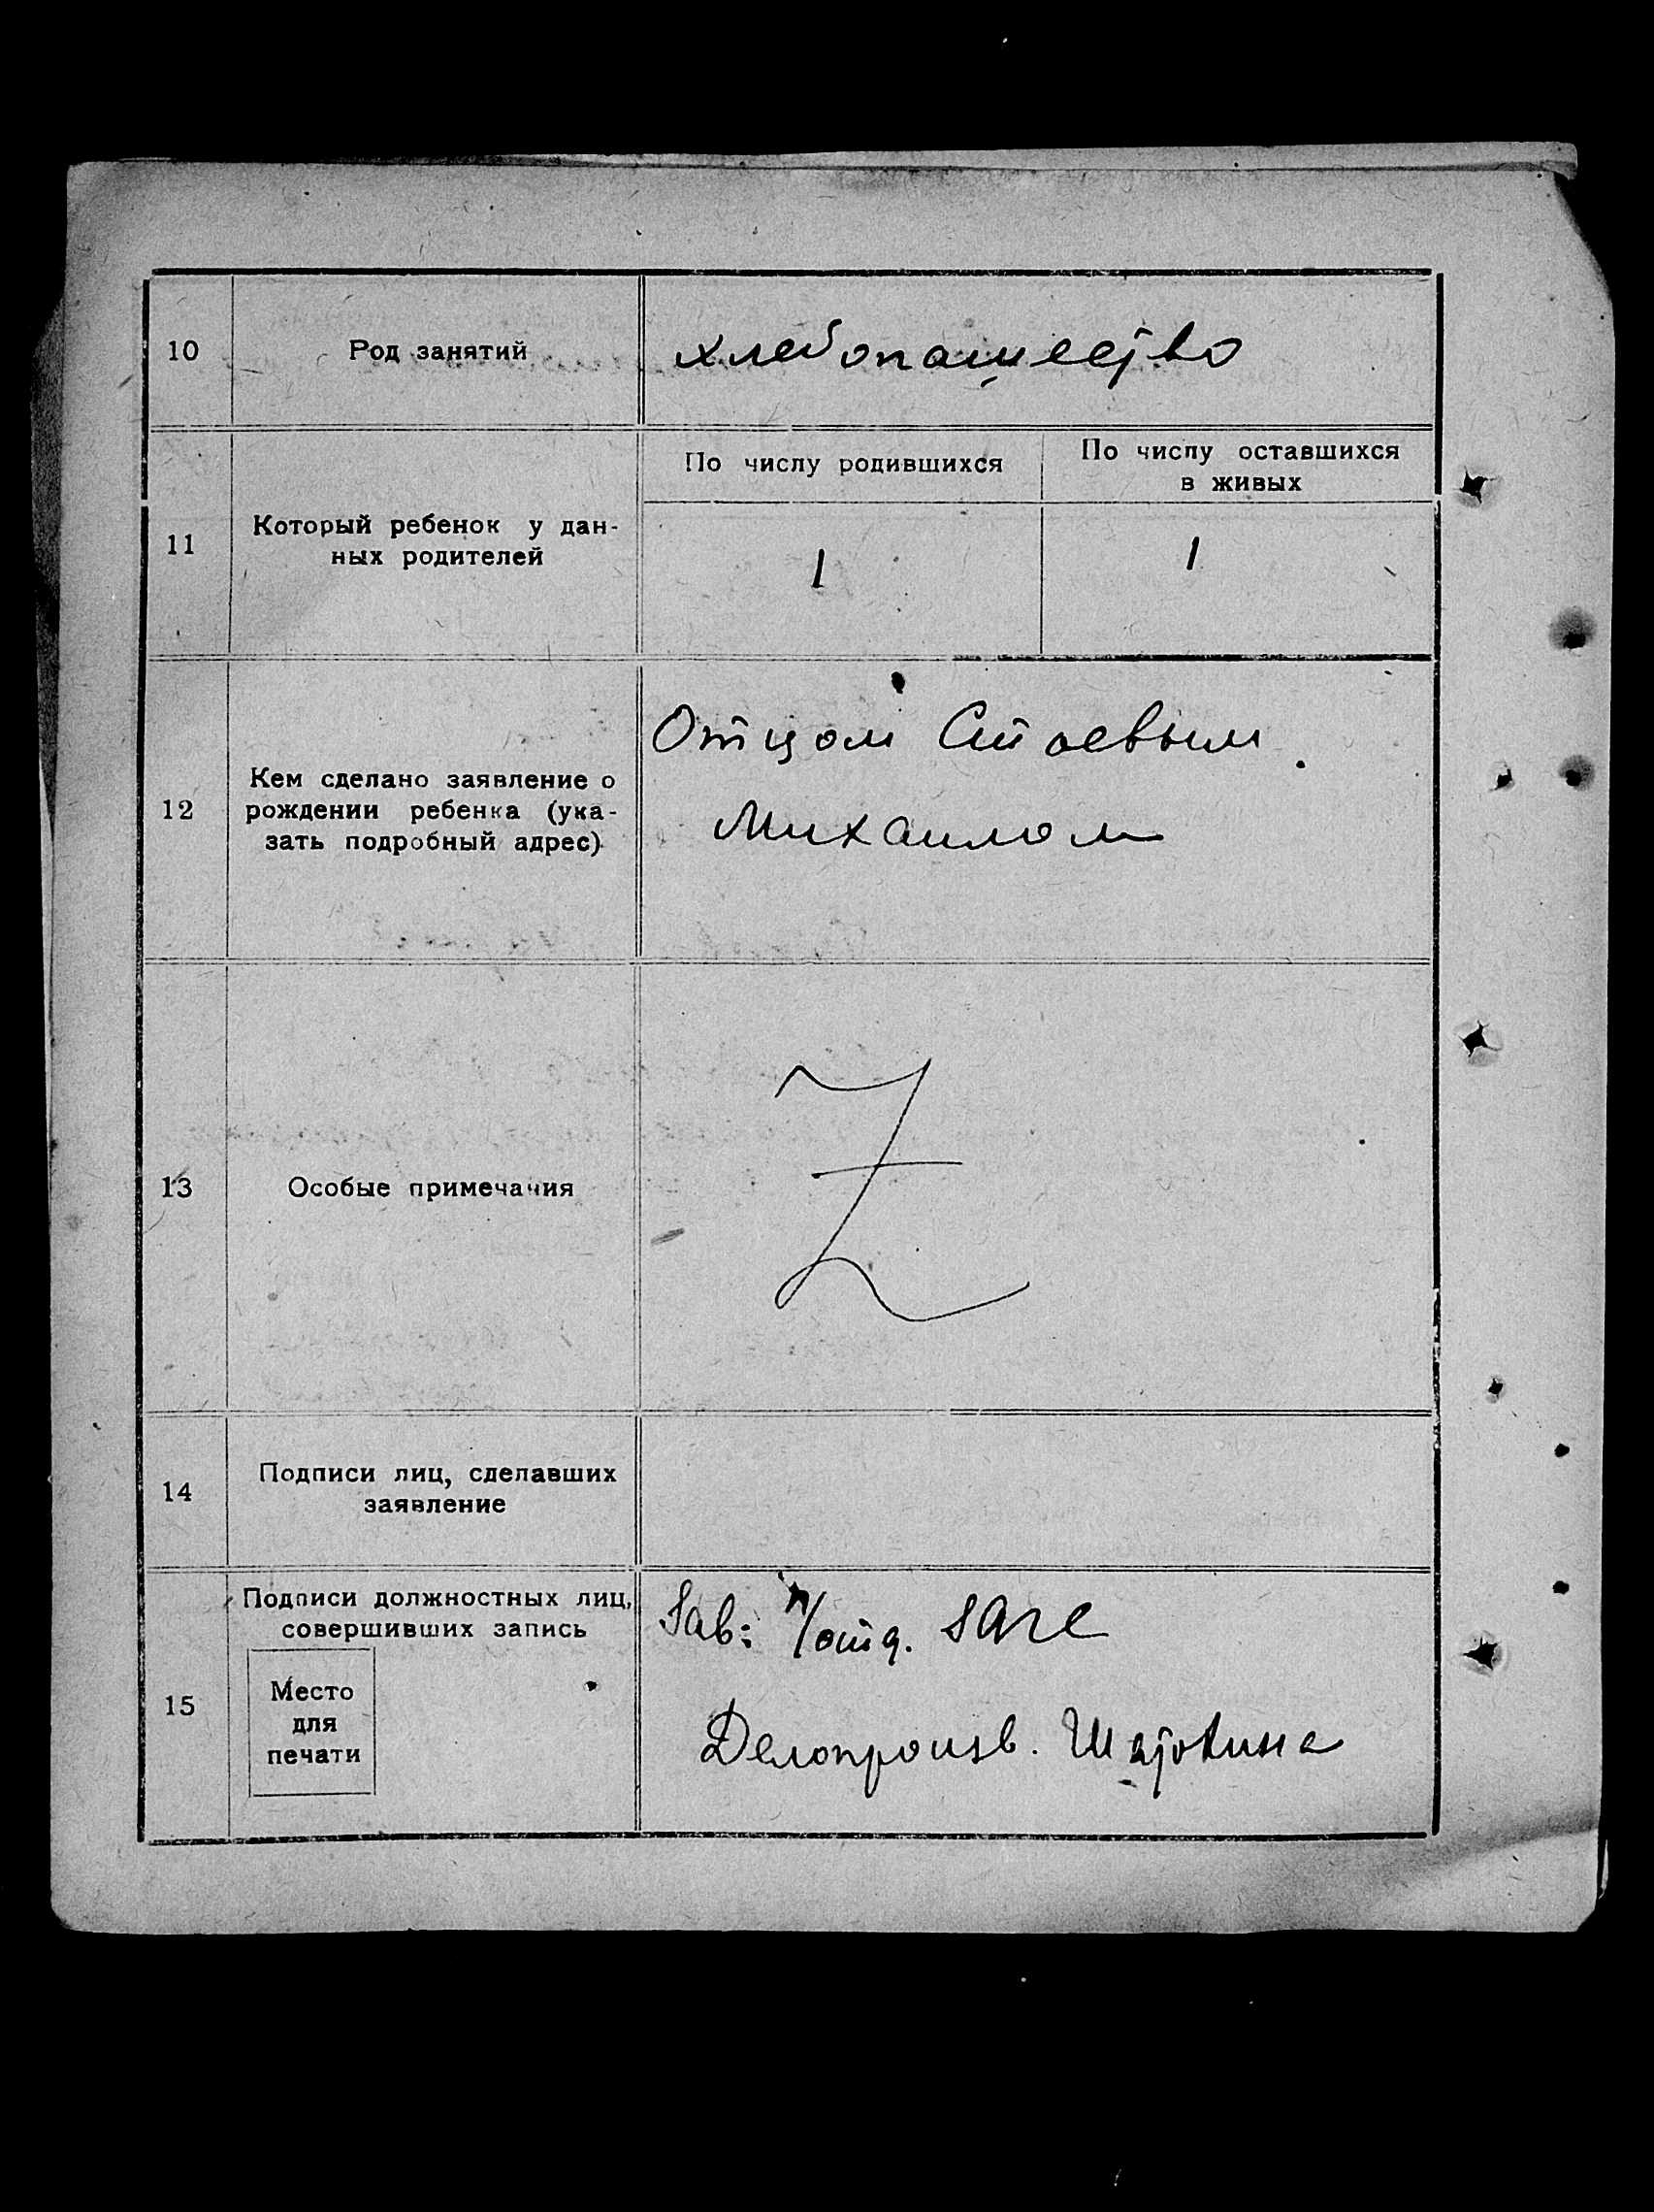 10
Род занятий
хлебопашество
11
Который ребенок у дан-
ных родителей
По числу родившихся
По числу оставшихся
в живых
1
1
12
Кем сделано заявление о
рождении ребенка (ука-
зать подробный адрес)
Отцом Стоевым
Михаилом
13
Особые примечания
Z
14
Подписи лиц, сделавших
заявление
15
Подписи должностных лиц,
совершивших запись
Место
для
печати
Зав: п/отд. ЗАГС
Делопроизв.